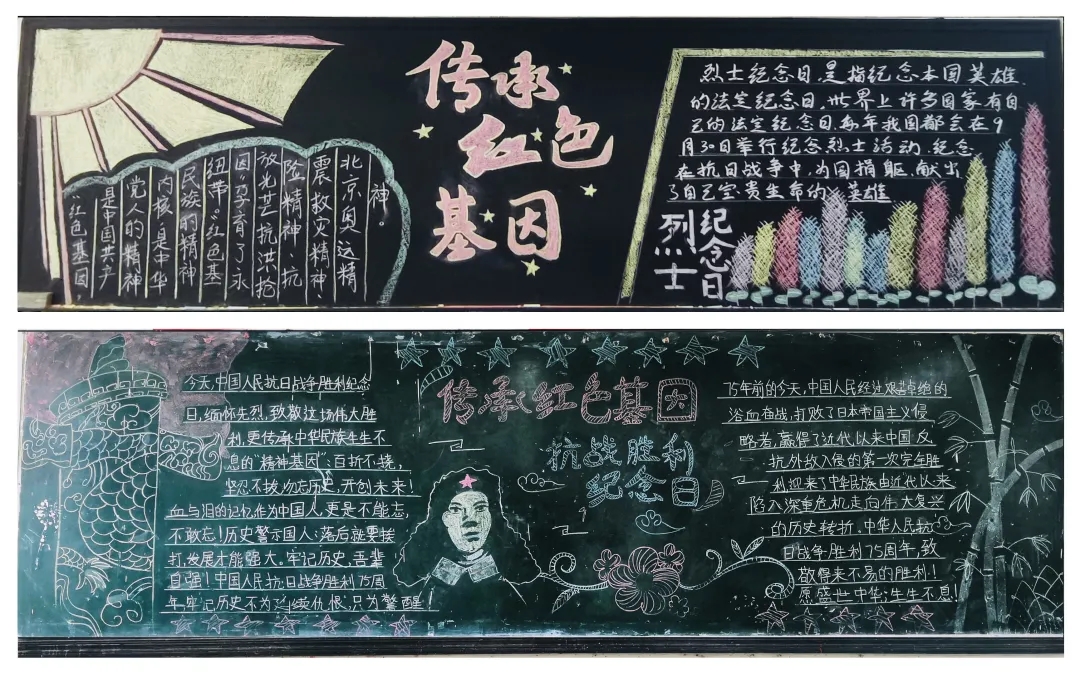 传承
红色
基因
神。
北京奥运精
震救灾精神、
险精神、抗
放光芒抗洪抢
因孕育了永
纽带。红色基
民族的精神
内核,是中华
党人的精神
是中国共产
“红色基因,
烈士纪念日,是指纪念本国英雄
的法定纪念日,世界上许多国家有自
己的法定纪念日,每年我国都会在9
月30日举行纪念烈士活动,纪念
在抗日战争中,为国捐躯,献出
了自己宝贵生命的英雄
烈士
纪念日
传承红色基因
抗战胜利
纪念日
今天,中国人民抗日战争胜利纪念
日,缅怀先烈,致敬这场伟大胜
利,更传承中华民族生生不
息的“精神基因”:百折不挠,
坚忍不拔,勿忘历史,开创未来!
血与泪的记忆,作为中国人,更是不能忘,
不敢忘!历史警示国人:落后就要挨
打,发展才能强大。牢记历史,吾辈
自强!中国人民抗日战争胜利75周
年,牢记历史不为延续仇恨,只为警醒!
75年前的今天,中国人民经过艰苦卓绝的
浴血奋战,打败了日本帝国主义侵
略者,赢得了近代以来中国反
抗外敌入侵的第一次完全胜
利,迎来了中华民族由近代以来
陷入深重危机走向伟大复兴
的历史转折,中华人民抗
日战争胜利75周年,致
敬得来不易的胜利!
愿盛世中华,生生不息!